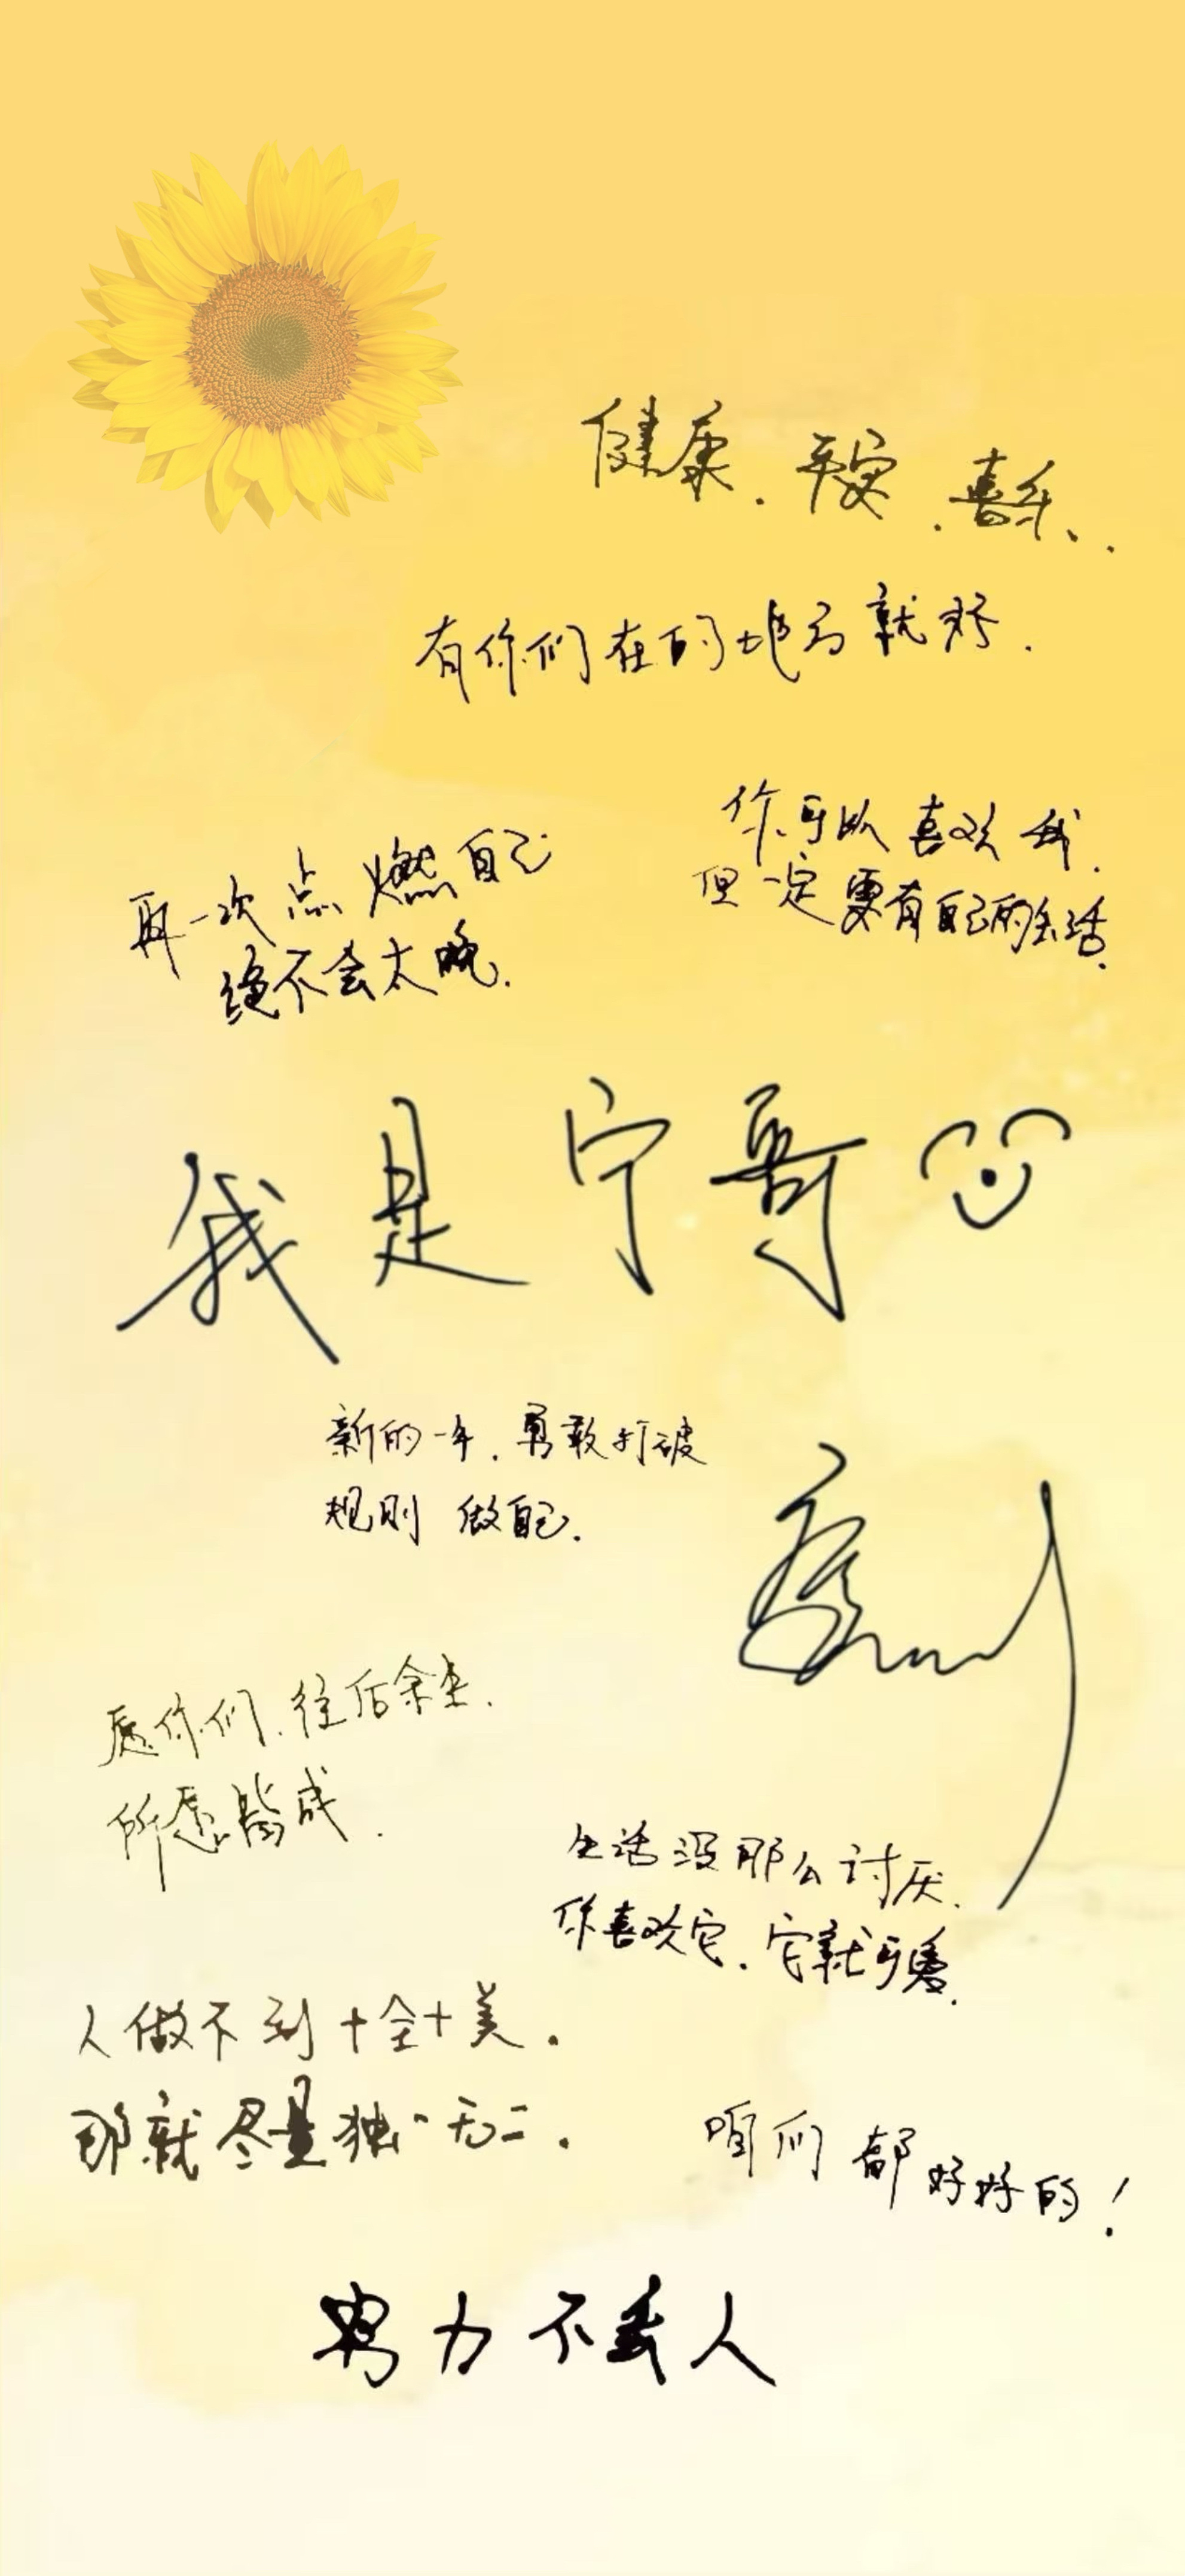 健康.平安.喜乐、.
有你们在的地方就好.
你可以喜欢我.
但一定要有自己的生活.
再一次点燃自己
绝不会太晚.
我是宁哥
新的一年.勇敢打破
规则 做自己.
愿你们.往后余生.
所愿皆成.
生活没那么讨厌.
你喜欢它.它就可爱.
人做不到十全十美.
那就尽量独一无二.
咱们都好好的!
努力不丢人